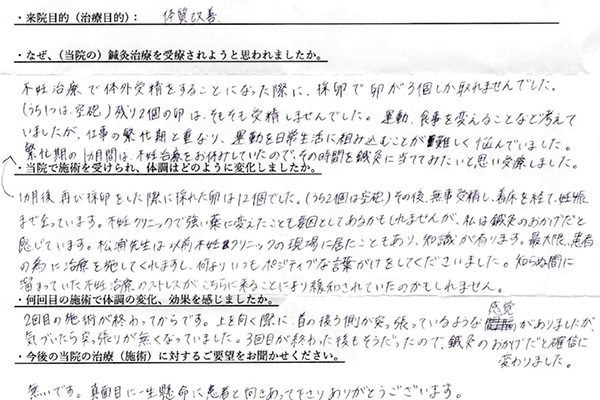 ・来院目的（治療目的）： 体質改善
・なぜ、（当院の）鍼灸治療を受療されようと思われましたか。
不妊治療で体外受精をすることになった際に、採卵で卵が3個しか取れませんでした。
（うち1つは、空砲）残り2個の卵は、そもそも受精しませんでした。運動、食事を変えることなど考えて
いましたが、仕事の繁忙期と重なり、運動を日常生活に組み込むことが難しく悩んでいました。
繁忙期の1カ月間は、不妊治療をお休みしていたので、その時間を鍼灸に当ててみたいと思い受療しました。
・当院で施術を受けられ、体調はどのように変化しましたか。
1カ月後再び採卵をした際に採れた卵は12個でした。（うち2個は空砲）その後、無事受精し、着床を経て、妊娠
まで至っています。不妊クリニックで強い薬に変えたことも要因としてあるかもしれませんが、私は鍼灸のおかげだと
感じています。松浦先生は以前不妊クリニックの現場に居たこともあり、知識が有ります。最大限、患者
の為に治療を施してくれますし、何よりいつもポジティブな言葉がけをしてくださいました。知らぬ間に
溜まっていた不妊治療のストレスがこちらに来ることにより緩和されていたのかもしれません。
・何回目の施術で体調の変化、効果を感じましたか。
2回目の施術が終わってからです。上を向く際に、首の後ろ側が突っ張っているような感覚がありましたが、
気づいたら突っ張りが無くなっていました。3回目が終わった後もそうだったので、鍼灸のおかげだと確信に
変わりました。
・今後の当院の治療（施術）に対するご要望をお聞かせください。
無いです。真面目に一生懸命に患者と向きあって下さりありがとうございます。